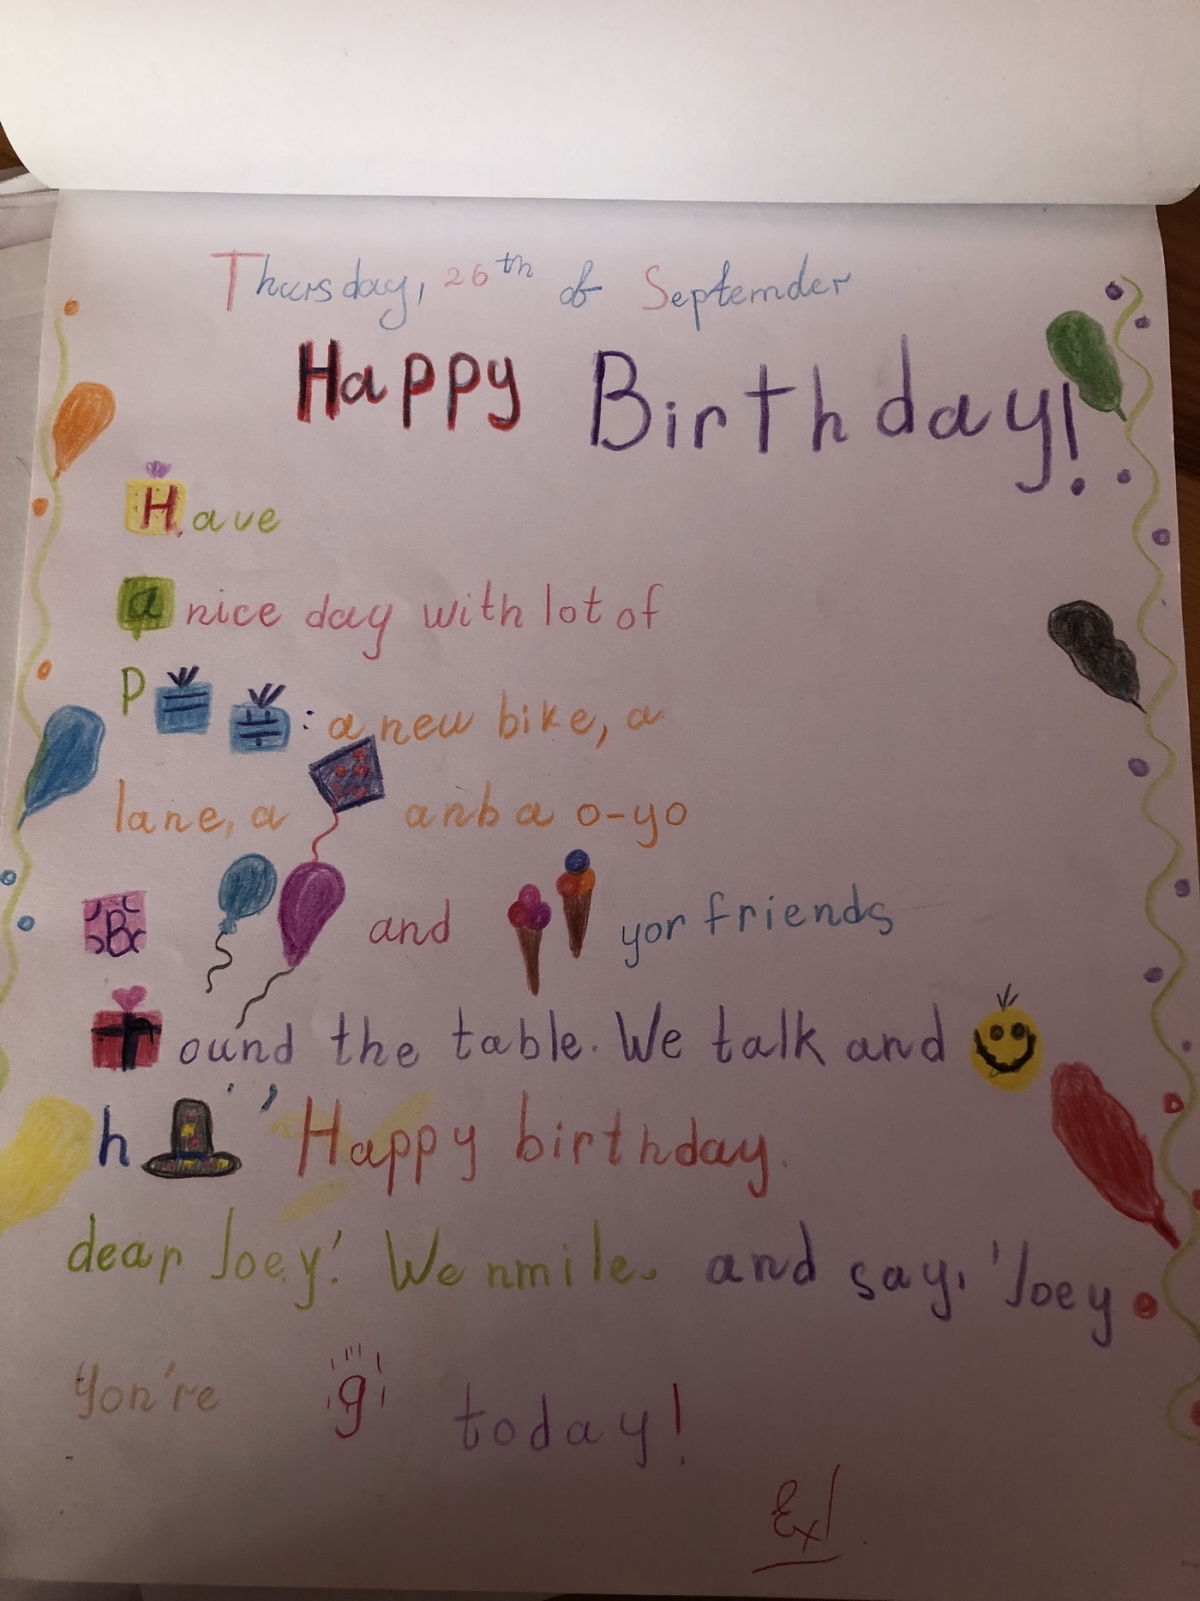 Thursday, 26th of Septemder
Happy Birthday!
Have
a nice day with lot of
P : a new bike, a
lane, a anb a o-yo
B and yor friends
r ound the table. We talk and
h 'Happy birthday.
dear Joey'. We nmile. and say, 'Joey
Yon're 9 today!
Ex!